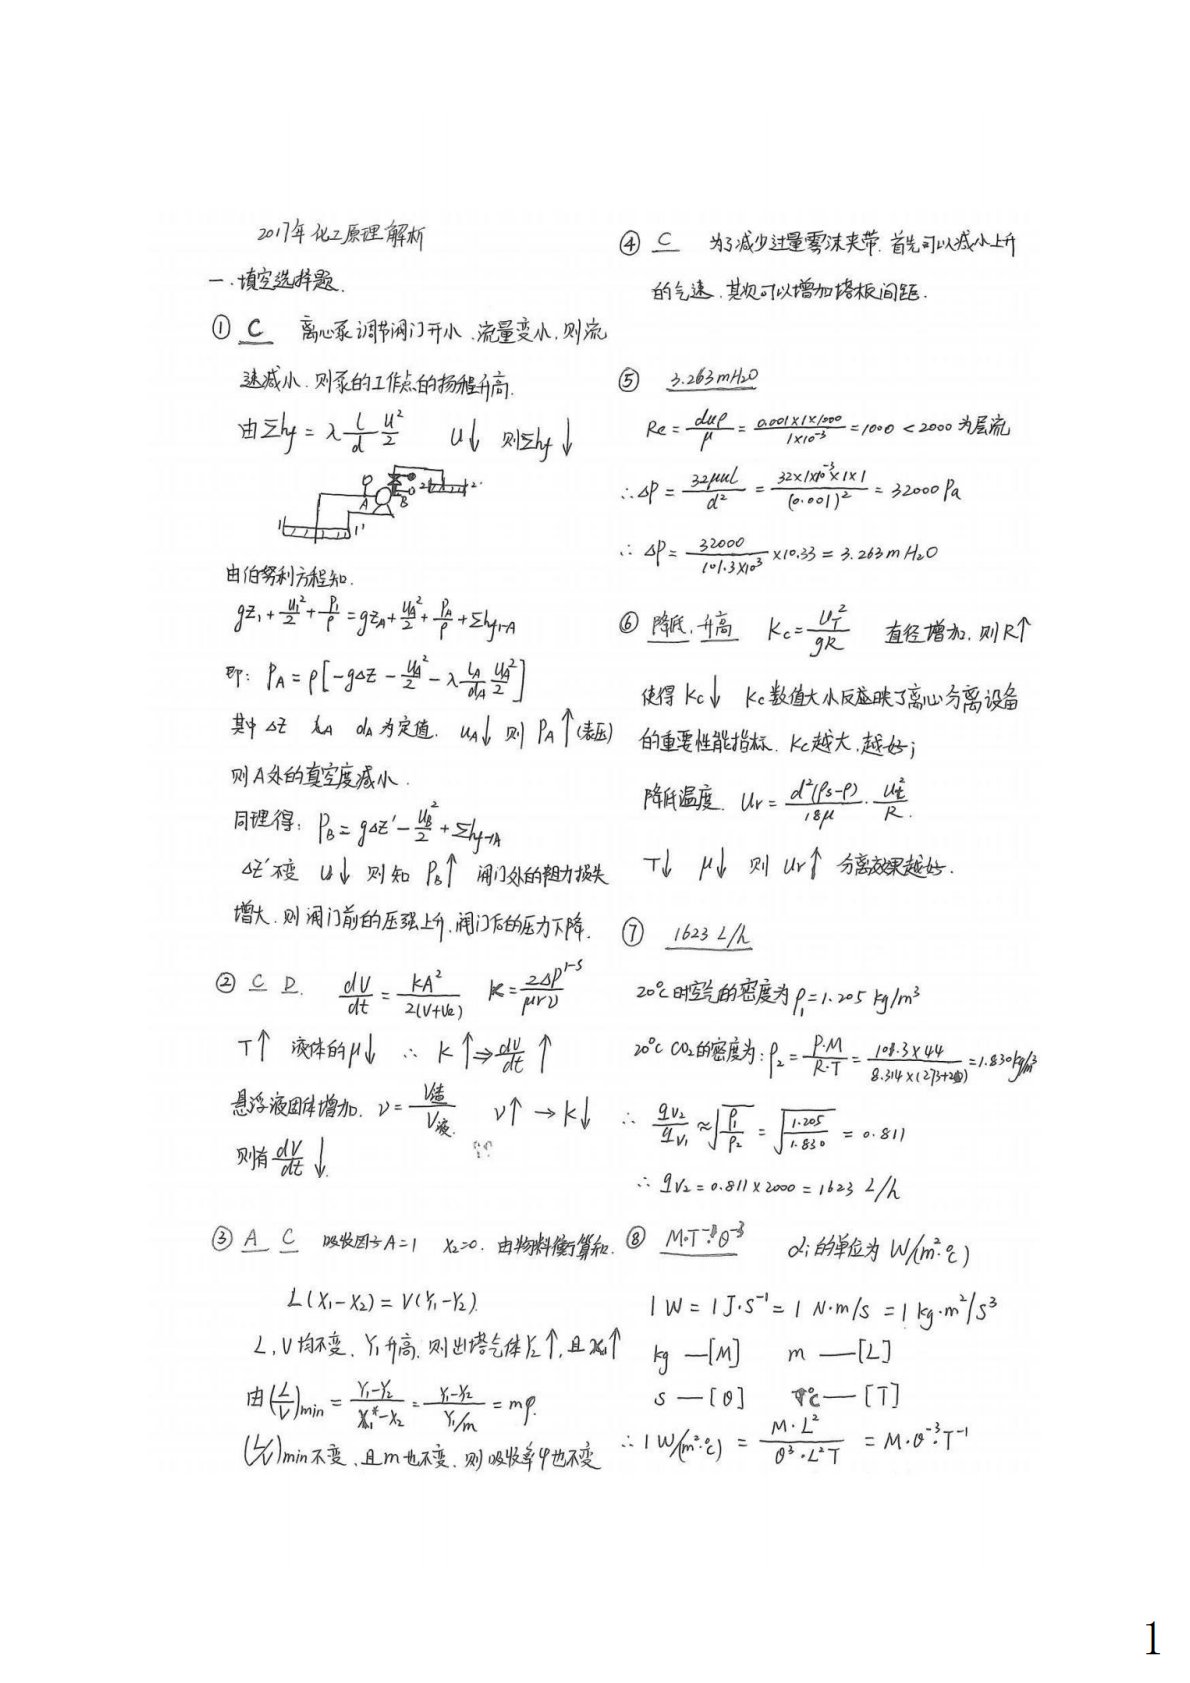 2017年化工原理解析
一.填空选择题.
① C 离心泵调节阀门开小.流量变小.则流
速减小.则泵的工作点的扬程升高.
由Σhf = λ l/d u²/2 u↓ 则Σhf↓
A B 2 2'
1 1'
由伯努利方程知.
gZ₁ + u₁²/2 + P₁/ρ = gZA + uA²/2 + PA/ρ + Σhf1-A
即: PA = ρ[-gΔZ - uA²/2 - λ lA/dA uA²/2]
其中 ΔZ lA dA 为定值. uA↓ 则 PA↑(表压)
则A处的真空度减小.
同理得: PB = gΔZ' - uB²/2 + Σhf-1A
ΔZ'不变 u↓ 则知 PB↑ 阀门处的阻力损失
增大.则阀门前的压强上升.阀门后的压力下降.
② C D. dV/dt = KA²/2(V+Ve) K = 2ΔP^1-S/μrν
T↑ 液体的μ↓ ∴ K↑⇒dV/dt↑
悬浮液固体增加. ν = V渣/V液. ν↑ → K↓
则有dV/dt↓.
③ A C 吸收因子A=1 X₂=0. 由物料衡算知.
L(X₁-X₂) = V(Y₁-Y₂).
L,V均不变. Y₁升高. 则出塔气体Y₂↑, 且X₁↑
由(L/V)min = Y₁-Y₂/X₁*-X₂ = Y₁-Y₂/Y₁/m = mφ.
(L/V)min不变.且m也不变.则吸收率φ也不变
④ C 为了减少过量雾沫夹带.首先可以减小上升
的气速.其次可以增加塔板间距.
⑤ 3.263mH₂O
Re = duρ/μ = 0.001×1×1000/1×10⁻³ = 1000 < 2000 为层流
∴ΔP = 32μul/d² = 32×1×10⁻³×1×1/(0.001)² = 32000 Pa
∴ ΔP = 32000/101.3×10³ ×10.33 = 3.263m H₂O
⑥ 降低.升高 Kc = uT²/gR 直径增加.则R↑
使得 Kc↓ Kc数值大小反应映了离心分离设备
的重要性能指标. Kc越大.越好;
降低温度. Ur = d²(ρs-ρ)/18μ · ut²/R.
T↓ μ↓ 则 Ur↑ 分离效果越好.
⑦ 1623 L/h
20℃时空气的密度为ρ₁=1.205 kg/m³
20℃ CO₂的密度为: ρ₂ = P·M/R·T = 101.3×44/8.314×(273+20) = 1.830kg/m³
∴ qv₂/qv₁ ≈ √ρ₁/ρ₂ = √1.205/1.830 = 0.811
∴ qv₂ = 0.811×2000 = 1623 L/h
⑧ M·T⁻¹·θ⁻³ αi的单位为 W/(m²·℃)
1W = 1J·s⁻¹ = 1 N·m/s = 1 kg·m²/s³
kg —[M] m —[L]
s —[θ] ℃—[T]
∴ 1W/(m²·℃) = M·L²/θ³·L²T = M·θ⁻³·T⁻¹
1